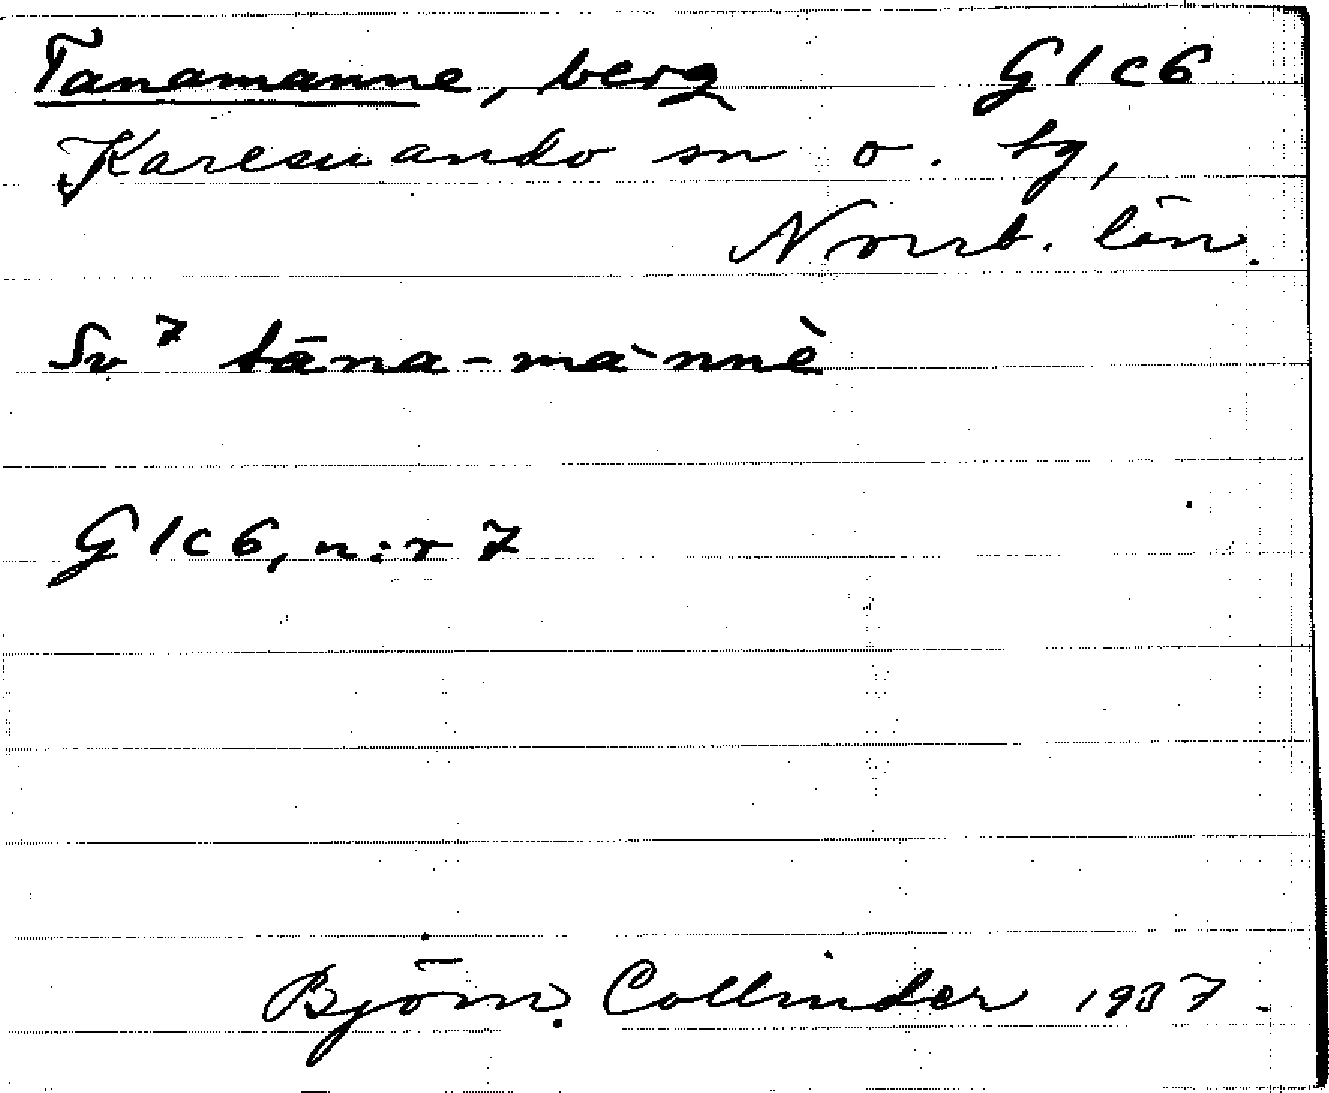 Tanamanne, berg G1c6
Karesuando sn o. tg,
Norrb. län.
Sv 7 tāna-mànnè
G1c6, n:r 7
Björn Collinder 1937.